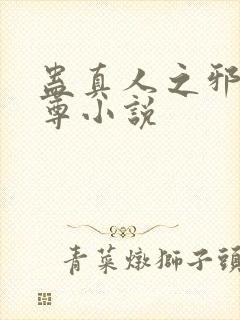 蠱真人之邪
尊小説
青菜燉獅子頭